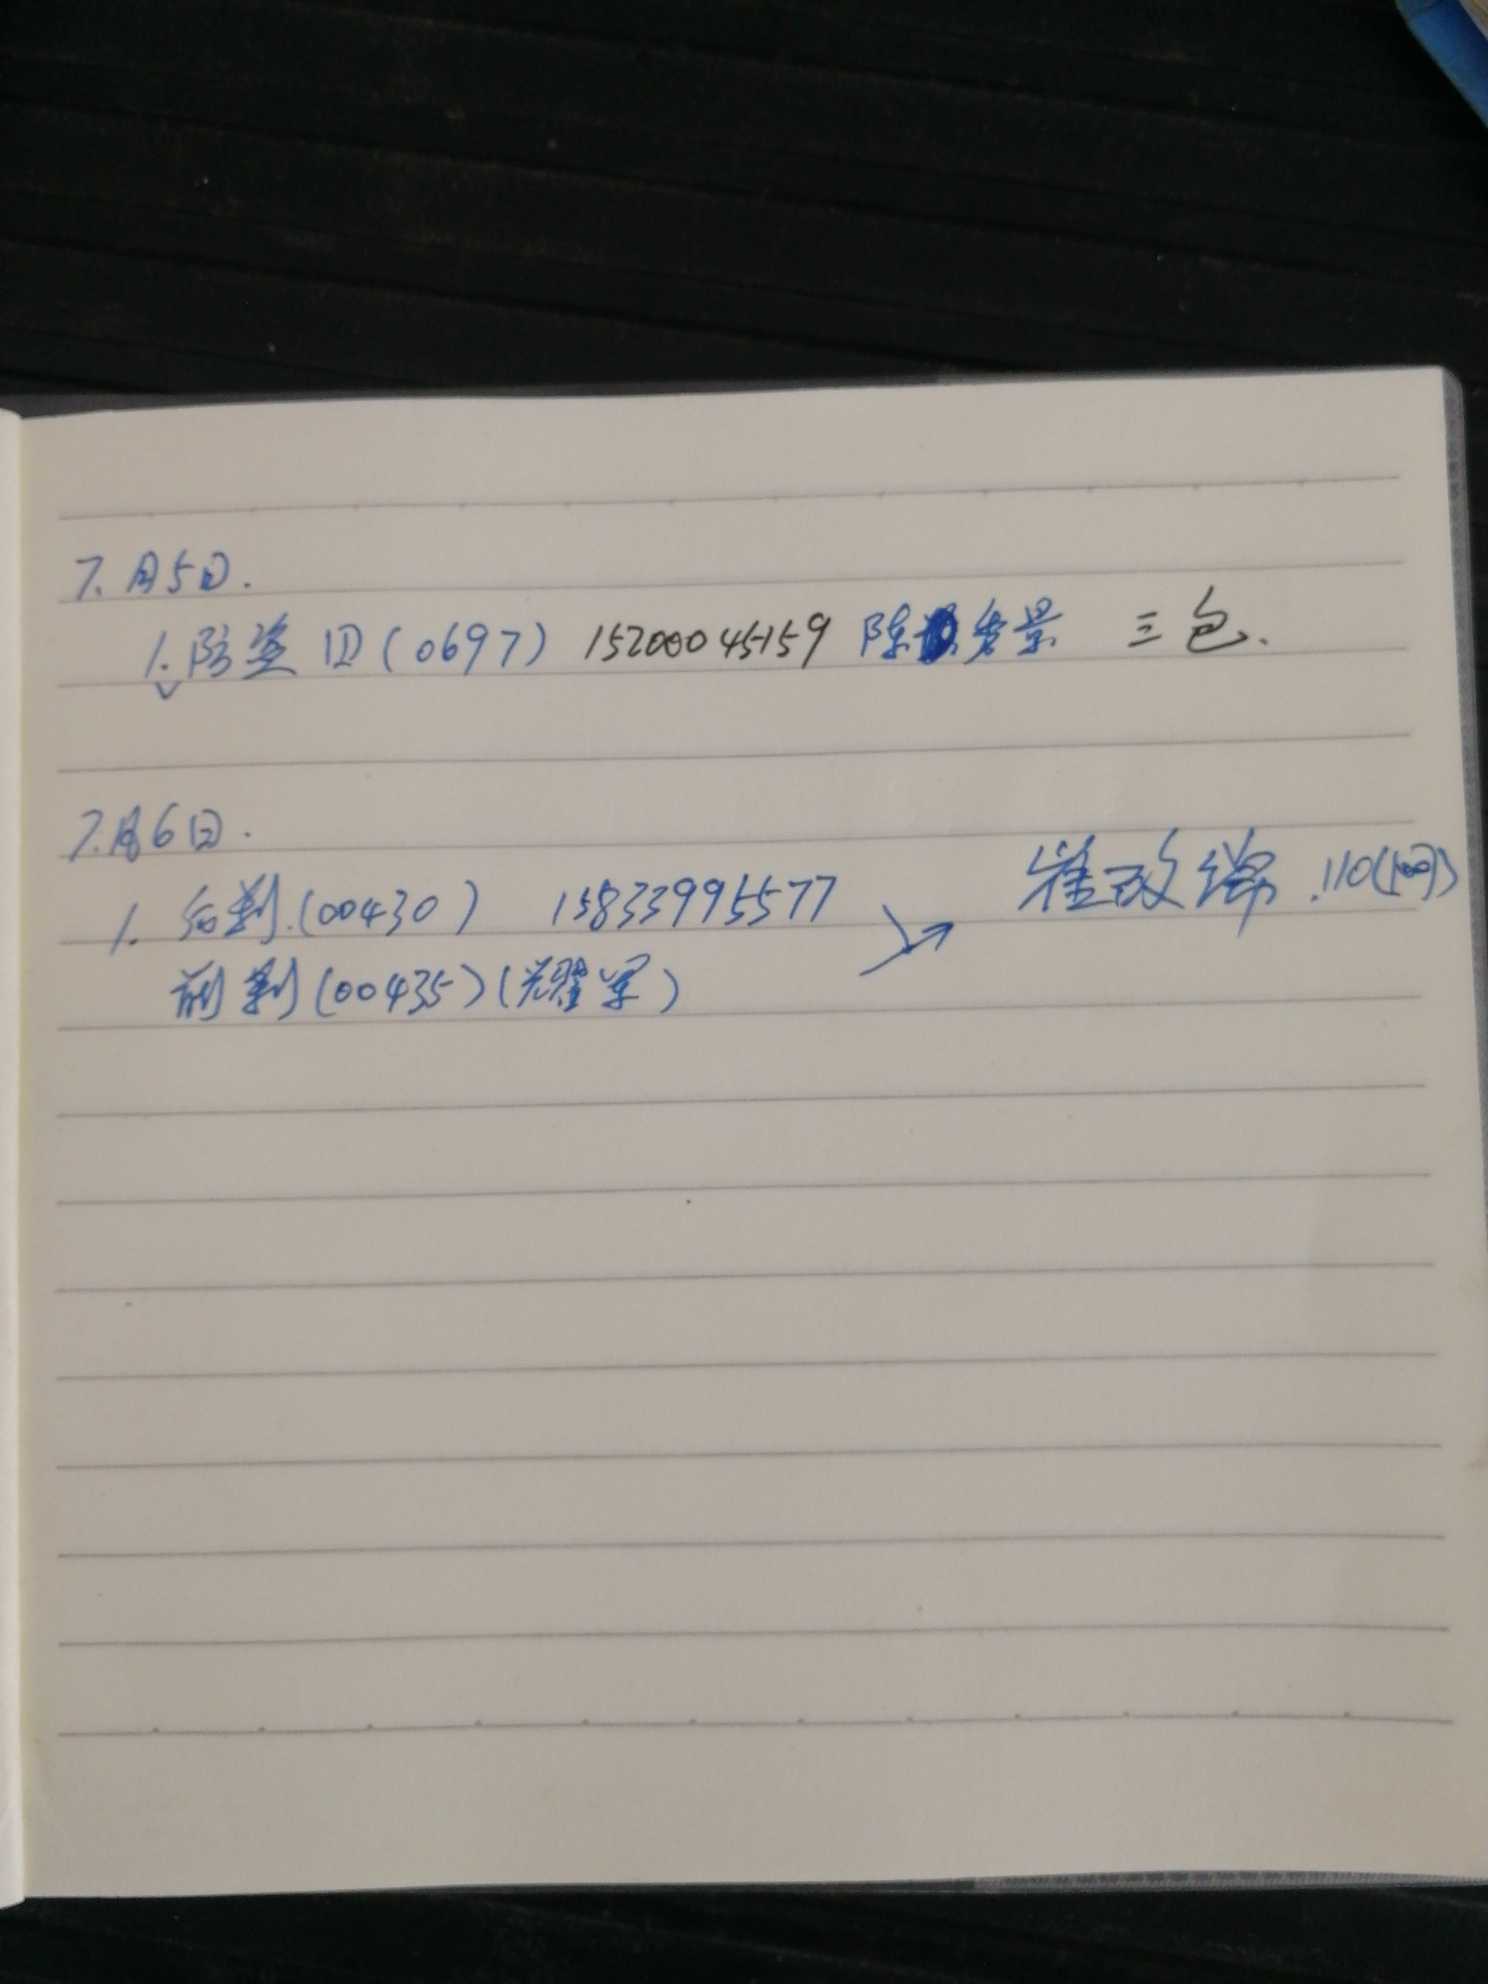 7.月5日.
1.防盗 (0697) 15200045159 陈景 三包.
7.月6日.
1. 后刹.(00430) 15833995577 崔改绵 .110(100)
前刹(00435)(耀军)